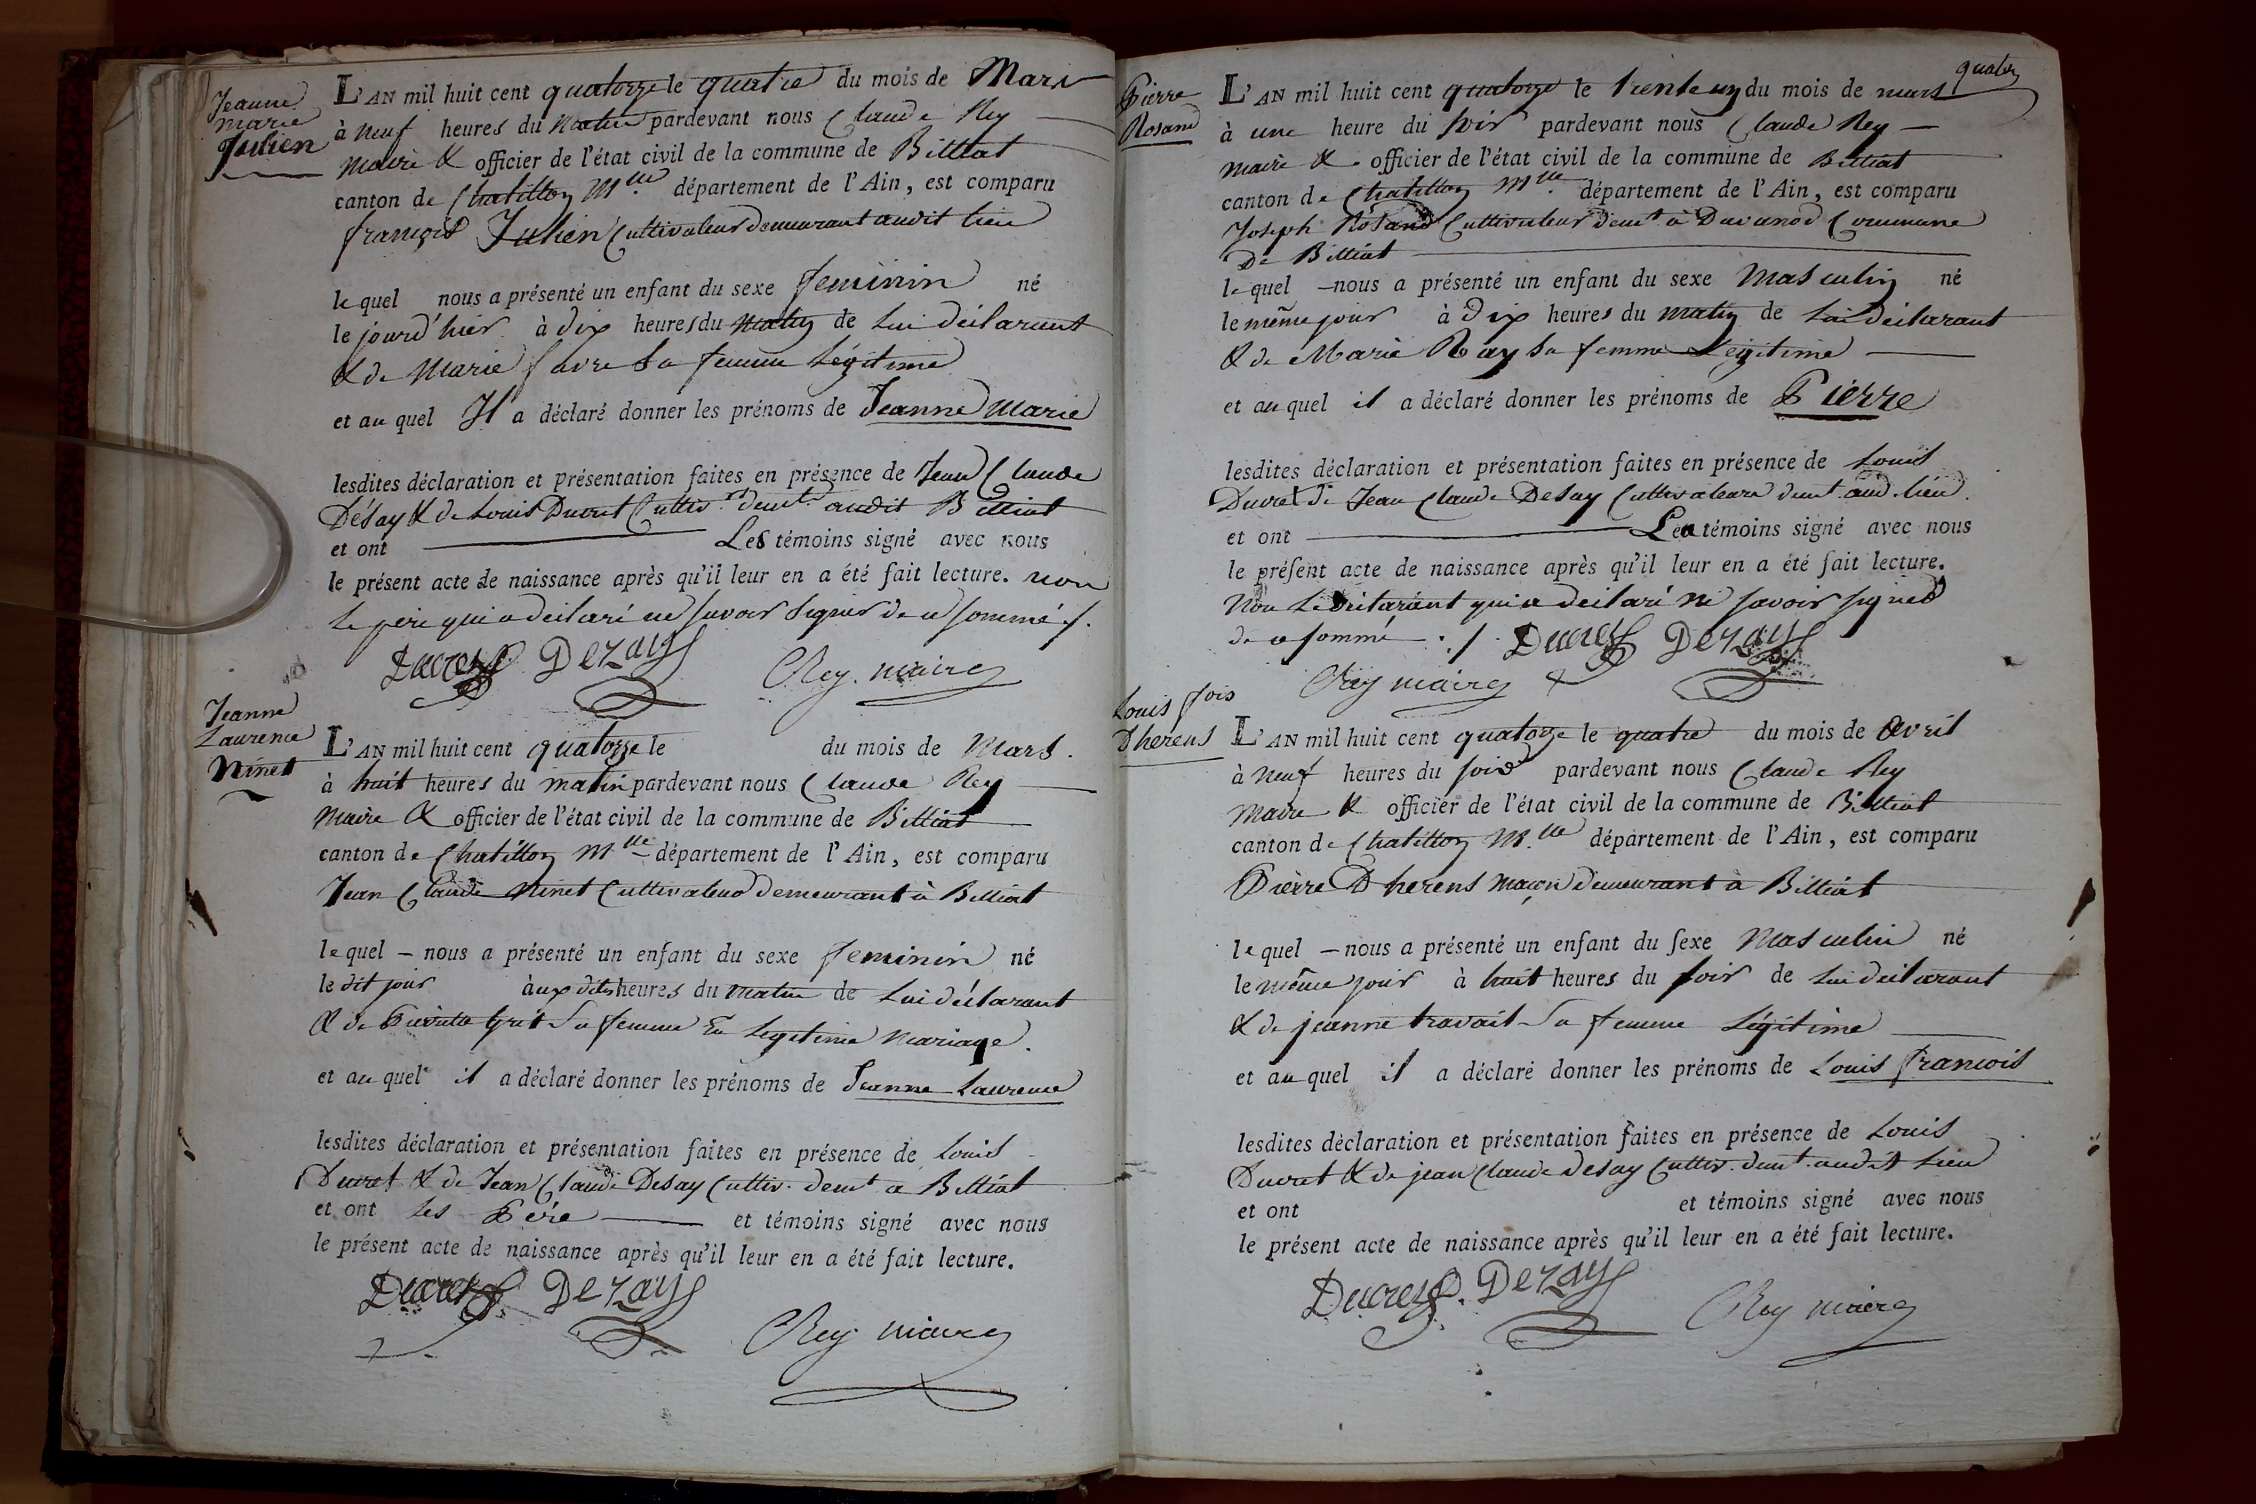 Jeanne
marie
Julien
L'AN mil huit cent quatorze le quatre du mois de Mars
à neuf heures du matin pardevant nous Claude Rey
maire & officier de l'état civil de la commune de Billiat
canton de Chatillon Mlle département de l'Ain, est comparu
françois Julien Cultivateur demeurant audit lieu
lequel nous a présenté un enfant du sexe feminin né
le jourd'hier à dix heures du matin de Lui déclarant
& de Marie favre Sa femme Légitime
et au quel Il a déclaré donner les prénoms de Jeanne Marie
lesdites déclaration et présentation faites en présence de Jean Claude
Désay & de Louis Ducret Cultiv.rs demt. audit Billiat
et ont Les témoins signé avec nous
le présent acte de naissance après qu'il leur en a été fait lecture. non
Le père qui a déclaré ne savoir signer de ce sommé ./.
Ducret Dezay CRey maire
Jeanne
Laurence
Ninet
L'AN mil huit cent quatorze le du mois de Mars.
à huit heures du matin pardevant nous Claude Rey
Maire & officier de l'état civil de la commune de Billiat
canton de Chatillon Mlle département de l'Ain, est comparu
Jean Claude Ninet Cultivateur demeurant à Billiat
lequel nous a présenté un enfant du sexe feminin né
le dit jour àuxdites heures du matin de Lui déclarant
& de Sa femme En Legitime Mariage.
et au quel il a déclaré donner les prénoms de Jeanne Laurence
lesdites déclaration et présentation faites en présence de Louis
Ducret & de Jean Claude Desay Cultiv. demt a Billiat
et ont Les Père et témoins signé avec nous
le présent acte de naissance après qu'il leur en a été fait lecture.
Ducret Dezay
CRey maire
quatre
Pierre
Rosand
L'AN mil huit cent quatorze le trente un du mois de mars
à une heure du soir pardevant nous Claude Rey
maire & officier de l'état civil de la commune de Billiat
canton de Chatillon Mlle département de l'Ain, est comparu
Joseph Rosand Cultivateur demt à Davanod Commune
De Billiat
lequel nous a présenté un enfant du sexe Masculin né
le même jour à dix heures du matin de Lui déclarant
& de Marie Ray Sa femme Légitime
et au quel il a déclaré donner les prénoms de Pierre
lesdites déclaration et présentation faites en présence de Louis
Ducret & de Jean Claude Desay Cultivateurs demt. aud. lieu.
et ont Les témoins signé avec nous
le présent acte de naissance après qu'il leur en a été fait lecture.
Non Le déclarant qui a déclaré ne savoir signer
de ce sommé ./. Ducret Dezay
CRey maire
Louis fois
Dherens
L'AN mil huit cent quatorze le quatre du mois de Avril
à neuf heures du soir pardevant nous Claude Rey
Maire & officier de l'état civil de la commune de Billiat
canton de Chatillon M.lle département de l'Ain, est comparu
Pierre Dherens Maçon demeurant à Billiat
lequel nous a présenté un enfant du sexe Masculin né
le même jour à huit heures du soir de Lui déclarant
& de jeanne travail Sa femme Légitime
et au quel il a déclaré donner les prénoms de Louis françois
lesdites déclaration et présentation faites en présence de Louis
Ducret & de jean Claude desay Cultiv. demt. audit Lieu
et ont et témoins signé avec nous
le présent acte de naissance après qu'il leur en a été fait lecture.
Ducret. Dezay
CRey maire